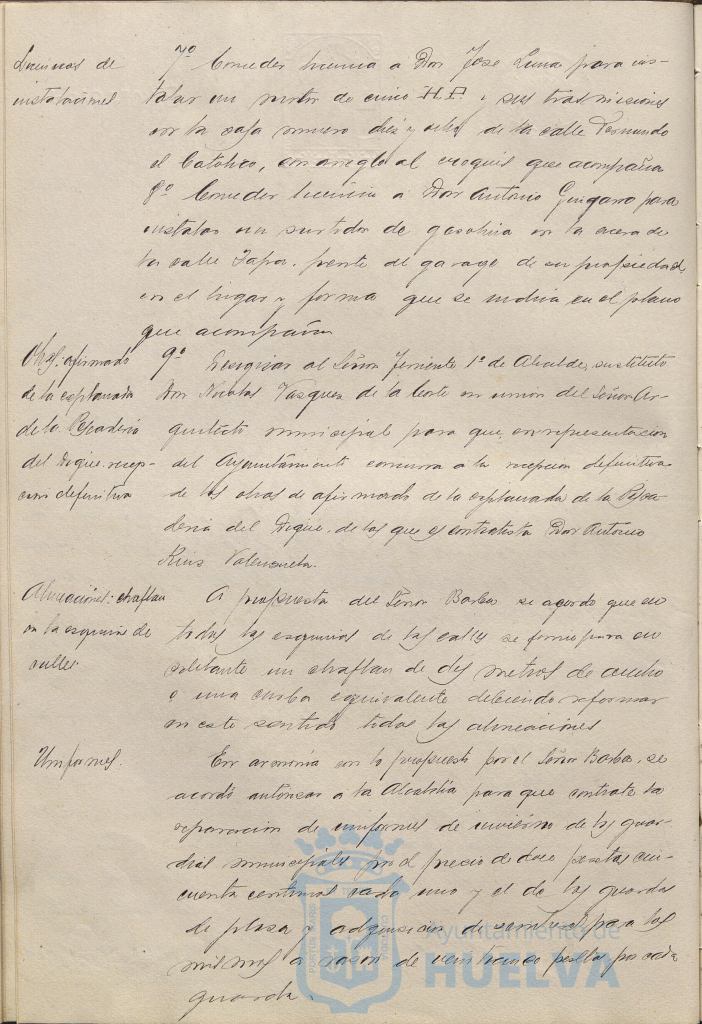 Licencias de
instalaciones
7º Conceder licencia a Don José Luna para ins-
talar un motor de cinco H.P. y sus trasmisiones
en la casa número diez y ocho de la calle Fernando
el Católico, con arreglo al croquis que acompaña
8º Conceder licencia a Don Antonio para
instalar un surtidor de gasolina en la acera de
la calle frente al garage de su propiedad
en el lugar y forma que se indica en el plano
que acompaña
Obras: afirmado
de la explanada
de la Pescadería
del Dique, recep-
ción definitiva
9º Designar al Señor Teniente 1º de Alcalde, sustituto
Don Nicolás Vázquez de la Corte en unión del Señor Ar-
quitecto municipal para que, en representación
del Ayuntamiento concurra a la recepción definitiva
de las obras de afirmado de la explanada de la Pesca-
dería del Dique, de las que es contratista Don Antonio
Valenzuela.
Alineaciones: chaflan
en la esquina de
calles.
A propuesta del Señor Barba se acordó que en
todas las esquinas de las calles se forme para en
adelante un chaflan de dos metros de ancho
o una curba equivalente debiendo reformar
en este sentido todas las alineaciones
Uniformes.
En armonía con lo propuesto por el Señor Barba, se
acordó autorizar a la Alcaldía para que contrate la
reparación de uniformes de invierno de los guar-
dias municipales por el precio de doce pesetas cin-
cuenta centimos cada uno y el de los guardas
de plaza y adquisición de para los
mismos a razón de veinticinco pesetas por cada
guarda.
PORTUS MARIS ET TERRAE CUSTODIA
Ayuntamiento de
HUELVA